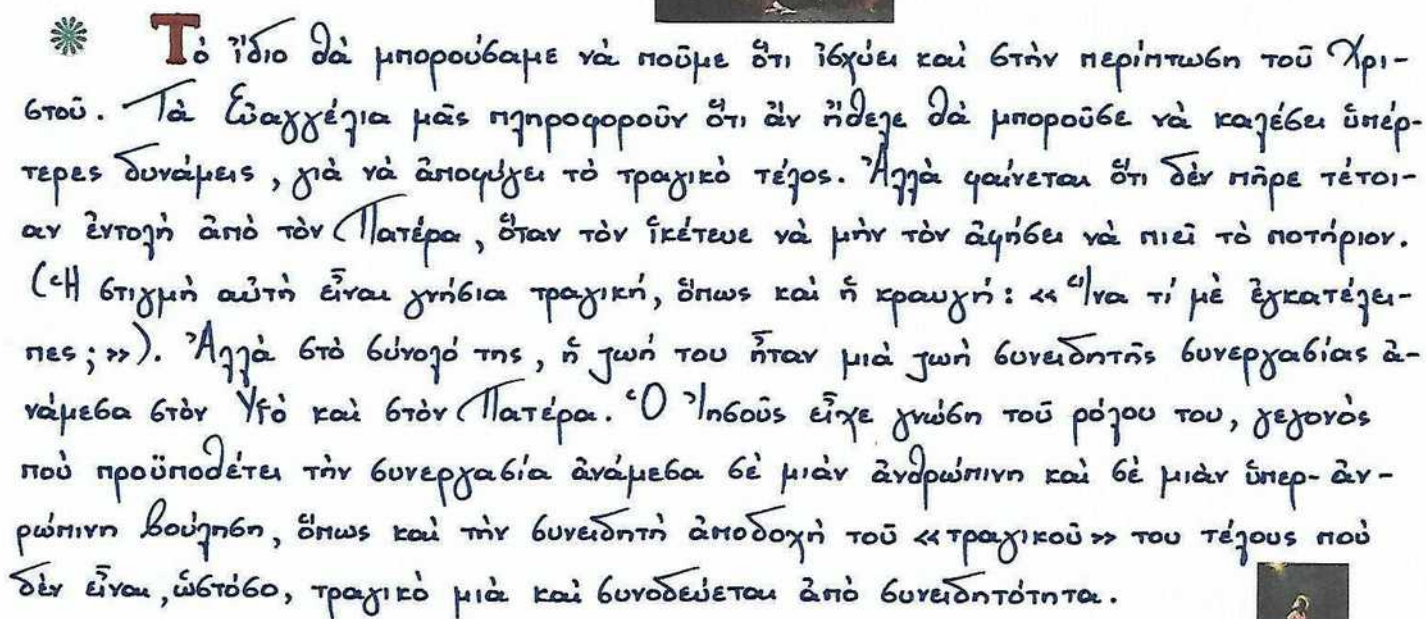 Τὸ ἴδιο θὰ μπορούσαμε νὰ ποῦμε ὅτι ἰσχύει καὶ στὴν περίπτωση τοῦ Χρι-
στοῦ. Τὰ Εὐαγγέλια μᾶς πληροφοροῦν ὅτι ἂν ἤθελε θὰ μποροῦσε νὰ καλέσει ὑπέρ-
τερες δυνάμεις, γιὰ νὰ ἀποφύγει τὸ τραγικὸ τέλος. Ἀλλὰ φαίνεται ὅτι δὲν πῆρε τέτοι-
αν ἐντολὴ ἀπὸ τὸν Πατέρα, ὅταν τὸν ἱκέτευε νὰ μὴν τὸν ἀφήσει νὰ πιεῖ τὸ ποτήριον.
(Ἡ στιγμὴ αὐτὴ εἶναι γνήσια τραγική, ὅπως καὶ ἡ κραυγή: «Ἵνα τί μὲ ἐγκατέλει-
πες;»). Ἀλλὰ στὸ σύνολό της, ἡ ζωή του ἦταν μιὰ ζωὴ συνειδητῆς συνεργασίας ἀ-
νάμεσα στὸν Υἱὸ καὶ στὸν Πατέρα. Ὁ Ἰησοῦς εἶχε γνώση τοῦ ρόλου του, γεγονὸς
ποὺ προϋποθέτει τὴν συνεργασία ἀνάμεσα σὲ μιὰν ἀνθρώπινη καὶ σὲ μιὰν ὑπερ-ἀν-
ρώπινη βούληση, ὅπως καὶ τὴν συνειδητὴ ἀποδοχὴ τοῦ «τραγικοῦ» του τέλους ποὺ
δὲν εἶναι, ὡστόσο, τραγικὸ μιὰ καὶ συνοδεύεται ἀπὸ συνειδητότητα.